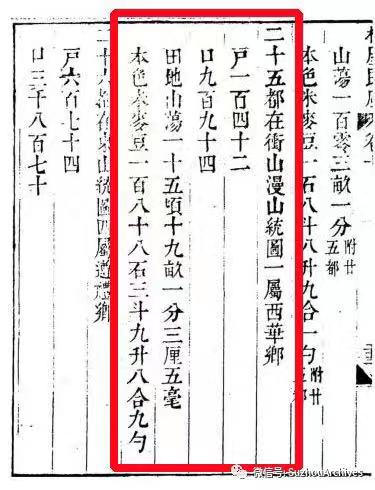 山蕩一百零三畝一分附廿五都
本色米麥豆一石八斗八升九合一勺附廿五都
二十五都在衝山漫山統圖一屬西華鄉
戸一百四十二
口九百九十四
田地山蕩一十五頃十九畝一分三厘五毫
本色米麥豆一百八十八石三斗九升八合九勺
二十六都在東山統圖四屬遵禮鄉
戸六百七十四
口三千八百七十
微信号: SuzhouArchives